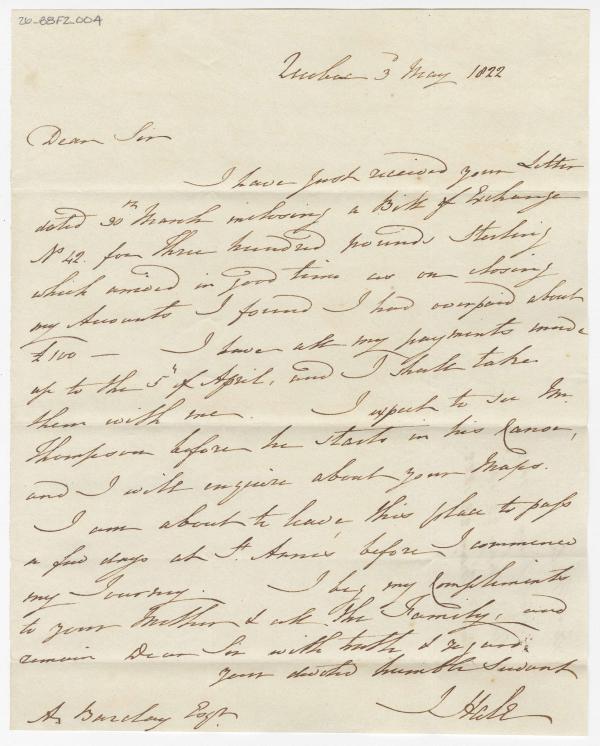 26-88F2.004
Quebec 3d May 1822
Dear Sir
I have just received your Letter
dated 30th March inclosing a Bill of Exchange
No 42. for Three hundred pounds Sterling
which arrived in good time as on closing
my Accounts I found I had overpaid about
£100 — I have all my payments made
up to the 5th of April, and I shall take
them with me. I expect to see Mr.
Thompson before he starts in his Canoe,
and I will enquire about your Maps.
I am about to leave this place to pass
a few days at St. Anne's before I commence
my Journey. I beg my Compliments
to your Mother & all the Family, and
remain Dear Sir with truth & regard
your devoted humble Servant
J Hale
A. Barclay Esqr.